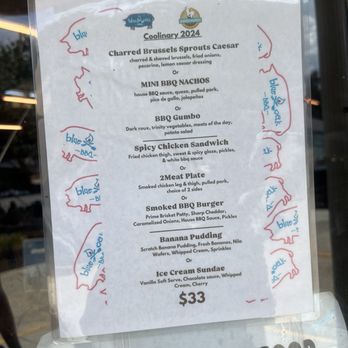 Blue Oak
BBQ
Coolinary 2024
Charred Brussels Sprouts Caesar
charred & shaved brussels, fried onions,
pecorino, lemon caesar dressing
Or
MINI BBQ NACHOS
house BBQ sauce, queso, pulled pork,
pico de gallo, jalapeños
Or
BBQ Gumbo
Dark roux, trinity vegetables, meats of the day,
potato salad
Spicy Chicken Sandwich
Fried chicken thigh, sweet & spicy glaze, pickles,
& white bbq sauce
Or
2Meat Plate
Smoked chicken leg & thigh, pulled pork,
choice of 2 sides
Or
Smoked BBQ Burger
Prime Brisket Patty, Sharp Cheddar,
Caramelized Onions, House BBQ Sauce, Pickles
Banana Pudding
Scratch Banana Pudding, Fresh Bananas, Nila
Wafers, Whipped Cream, Sprinkles
Or
Ice Cream Sundae
Vanilla Soft Serve, Chocolate sauce, Whipped
Cream, Cherry
$33